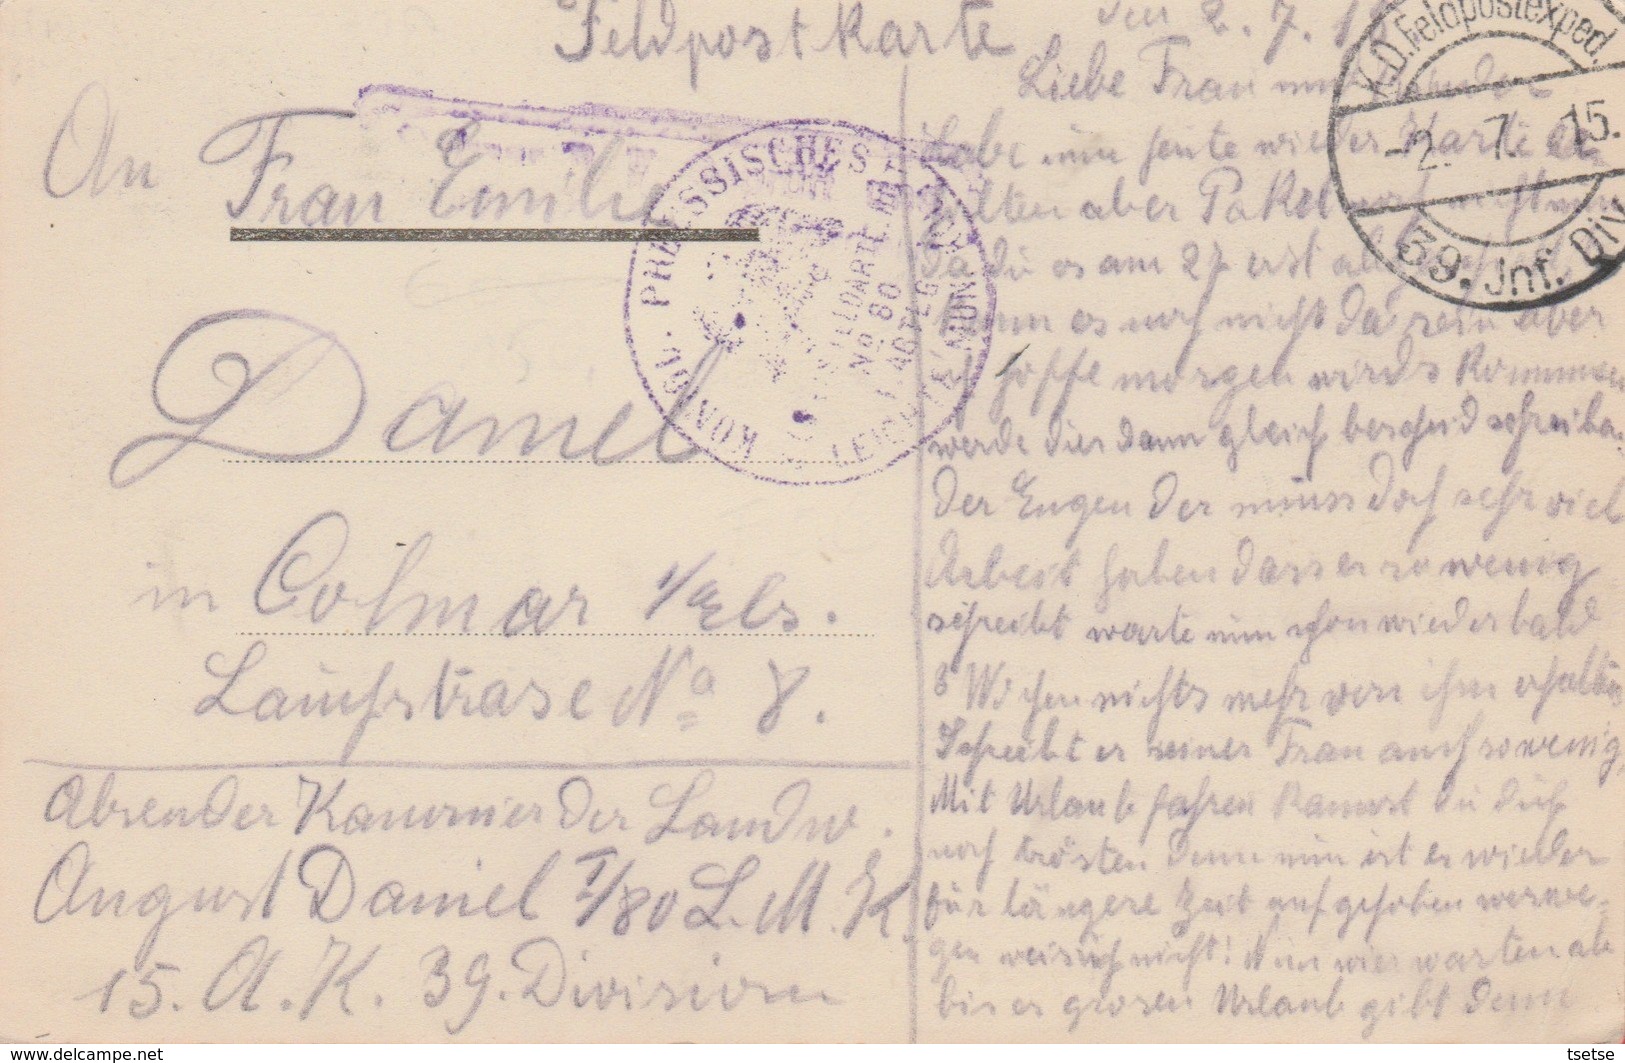 Feldpostkarte
An
Frau Emilie
Daniel
in Colmar i/Els.
Lauchstrase No 8.
Absender Kanonier der Landw.
August Daniel I/80 L. M. K.
15. A. K. 39. Division
den 2. 7. 15
Liebe Frau und Kinder
Habe nun heute wieder Karte er
halten aber Paket noch nicht nun
da du es am 27 erst
kann es noch nicht da sein aber
ich hoffe morgen wirds kommen
werde dier dann gleich bescheid schreiben.
Der Eugen der muss doch sehr viel
Arbeit haben dass er so wenig
schreibt warte nun schon wieder bald
3 Wochen nichts mehr von ihm erhalten
Schreibt er seiner Frau auch so wenig,
Mit Urlaub fahren kannst du dich
noch trösten denn nun ist es wieder
für längere Zeit aufgehoben
gen weis ich nicht! Nun wier warten ab
bis es grosen Urlaub gibt denn
K.D. Feldpostexped.
-2. 7. 15.
39. Inf. Div
KÖNIGL. PREUSSISCHES
FELDARTL.
No 80
LEICHTE MUN
delcampe.net
tsetse